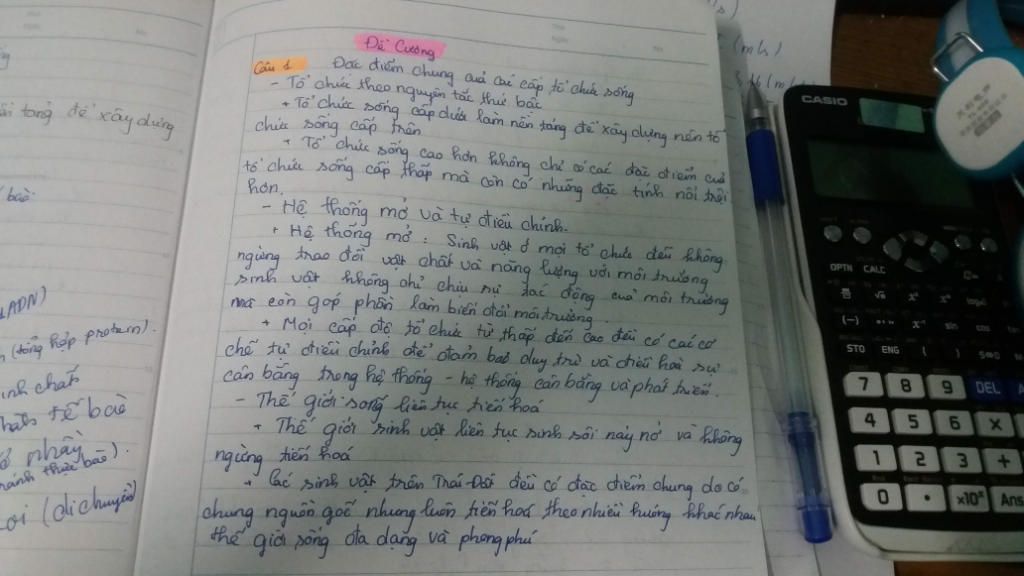 Đề Cương
Câu 1 Đặc điểm chung của các cấp tổ chức sống
- Tổ chức theo nguyên tắc thứ bậc
+ Tổ chức sống cấp dưới làm nền tảng để xây dựng nên tổ
chức sống cấp trên
+ Tổ chức sống cao hơn không chỉ có các đặc điểm của
tổ chức sống cấp thấp mà còn có những đặc tính nổi trội
hơn.
- Hệ thống mở và tự điều chỉnh.
+ Hệ thống mở : Sinh vật ở mọi tổ chức đều không
ngừng trao đổi vật chất và năng lượng với môi trường
sinh vật không chỉ chịu sự tác động của môi trường
mà còn góp phần làm biến đổi môi trường.
+ Mọi cấp độ tổ chức từ thấp đến cao đều có các cơ
chế tự điều chỉnh để đảm bảo duy trì và điều hoà sự
cân bằng trong hệ thống - hệ thống cân bằng và phát triển.
- Thế giới sống liên tục tiến hoá
+ Thế giới sinh vật liên tục sinh sôi nảy nở và không
ngừng tiến hoá
+ Các sinh vật trên Trái Đất đều có đặc điểm chung do có
chung nguồn gốc nhưng luôn tiến hoá theo nhiều hướng khác nhau
thế giới sống đa dạng và phong phú
tảng để xây dựng
bào
ADN)
(tổng hợp protein).
chất
tế bào
nhầy
thực bào).
(di chuyển)
CASIO
OPTN CALC
(-) sin cos
STO ENG ( )
7 8 9 DEL
4 5 6 ×
1 2 3 +
0 . ×10ˣ Ans